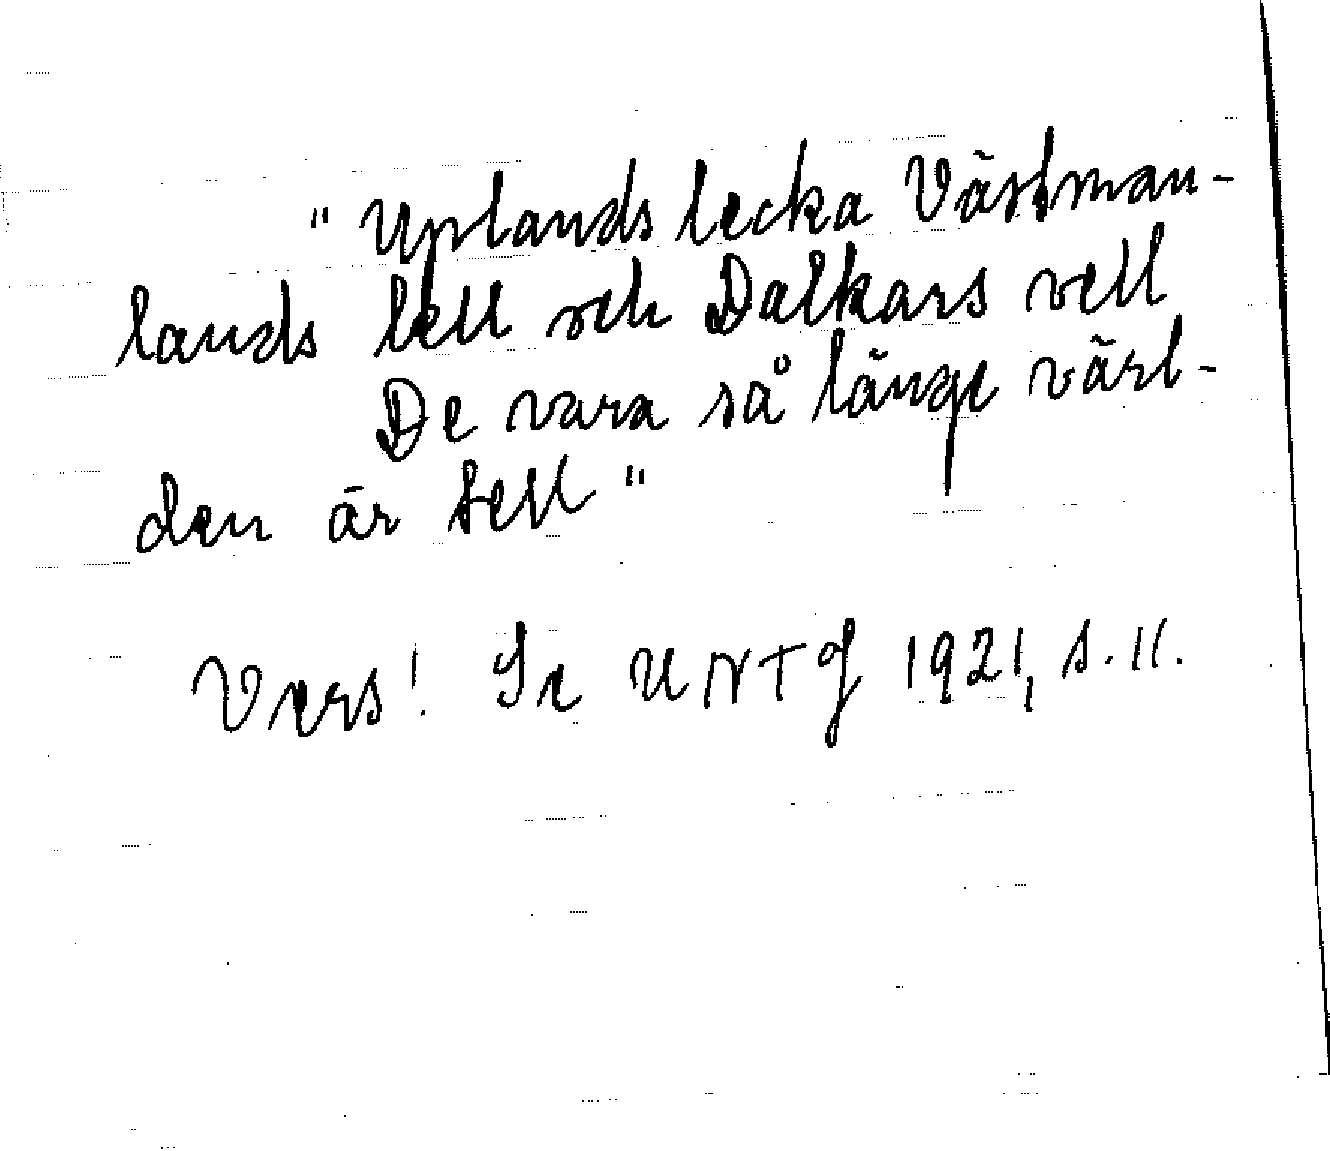 "Uplands lecka Västman-
lands lell och Dalkars vell
De vara så länge värl-
den är tell"
Vers! Se UNTg 1921, s. 11.